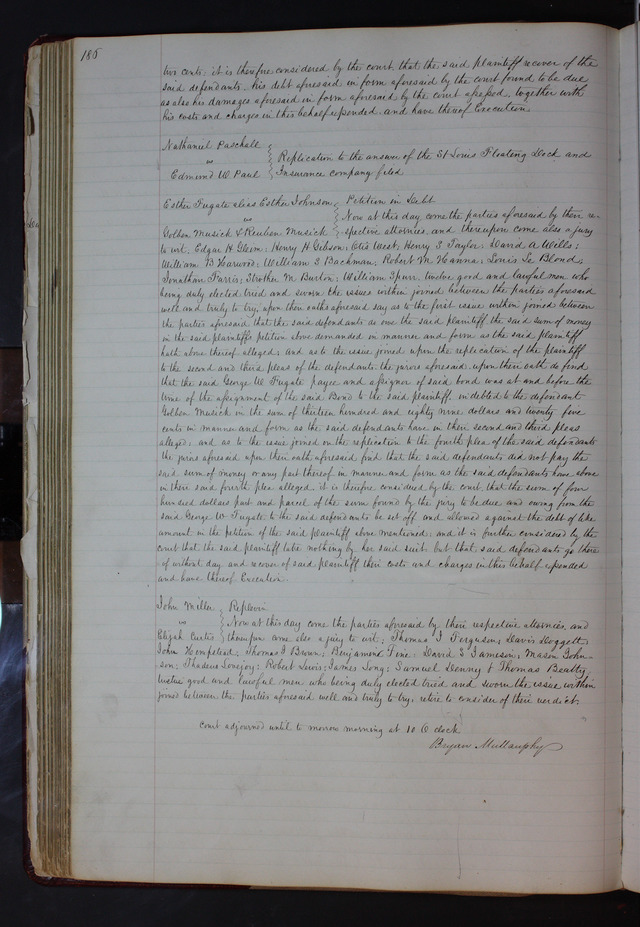 186
two cents; it is therefore considered by the court that the said plaintiff recover of the
said defendants. his debt aforesaid in form aforesaid by the court found to be due
as also his damages aforesaid in form aforesaid by the court assessed, together with
his costs and charges in this behalf expended. and have thereof Execution
Nathaniel Paschall
vs
Edmond W Paul
Replication to the answer of the St Louis Floating Dock and
Insurance company filed
Esther Fugate alias Esther Johnson
vs
Golden Musick & Reuben Musick
Petition in Debt
Now at this day come the parties aforesaid by their re-
spective attornies, and thereupon come also a jury
to wit. Edgar H. Henry H Gibson; Otis West; Henry S Taylor; David A Wells;
William B Harwood; William S Backman; Robert M Hanna; Louis Le Blond,
Jonathan Farris; Strother M Burton; William Spurr. twelve good and lawful men who
being duly elected tried and sworn the issues within joined between the parties aforesaid
well and truly to try, upon their oaths aforesaid say as to the first issue within joined between
the parties aforesaid that the said defendants do owe the said plaintiff the said sum of money
in the said plaintiffs petition above demanded in manner and form as the said plaintiff
hath above thereof alleged; And as to the issue joined upon the replication of the plaintiff
to the second and third pleas of the defendants. the jurors aforesaid. upon their oath do find
that the said George W Fugate payee and assignor of said bond was at and before the
time of the assignment of the said Bond to the said plaintiff, indebted to the defendant
Golden Musick in the sum of thirteen hundred and eighty nine dollars and twenty five
cents in manner and form as the said defendants have in their second and third pleas
alleged; and as to the issue joined on the replication to the fourth plea of the said defendants
the jurors aforesaid upon their oath aforesaid find that the said defendants did not pay the
said sum of money or any part thereof in manner and form as the said defendants have above
in their said fourth plea alleged. it is therefore considered by the court that the sum of four
hundred dollars part and parcel of the sum found by the jury to be due and owing from the
said George W. Fugate to the said defendants be set off and allowed against the debt of like
amount in the petition of the said plaintiff above mentioned. and it is further considered by the
court that the said plaintiff take nothing by her said suit. but that said defendants go there
of without day and recover of said plaintiff their costs and charges in this behalf expended
and have thereof Execution.
John Miller
vs
Elijah Curtis
Replevin
Now at this day come the parties aforesaid by their respective attornies, and
thereupon come also a jury to wit; Thomas J Ferguson; Davis Doggett;
John Hempstead; Thomas J Brown; Benjamin Fine; David S Jameson; Mason John-
son; Thaseus Lovejoy; Robert Lewis; James Long; Samuel Denny & Thomas Beatty
twelve good and lawful men who being duly elected tried and sworn the issue within
joined between the parties aforesaid well and truly to try, retire to consider of their verdict.
Court adjourned until to morrow morning at 10 O clock
Bryan Mullanphy